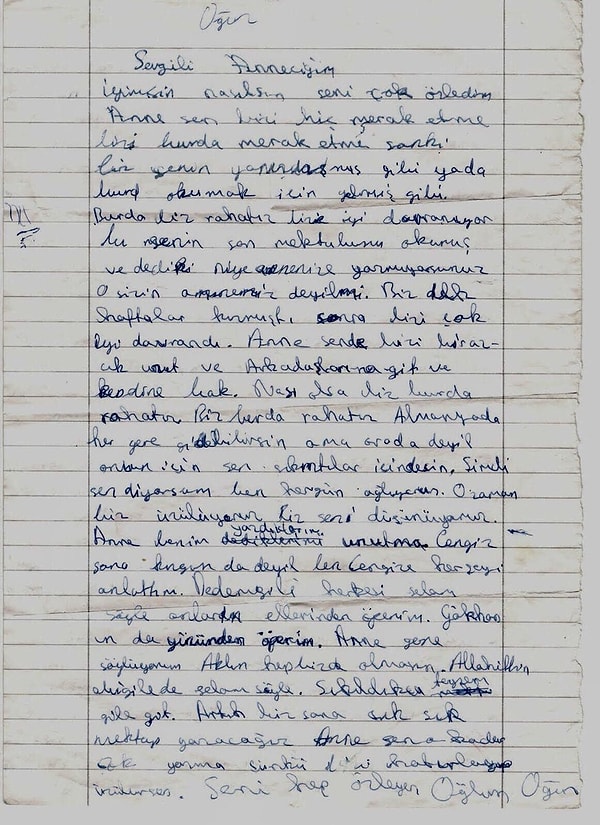 Oğuz
Sevgili Anneciğim
iyimisin nasılsın seni çok özledim
Anne sen bizi hiç merak etme
bizi burda merak etme sanki
biz senin yanındaymış gibi yada
burd okumak için gelmiş gibi
Burda biz rahatız bize iyi davranıyor
bu senin son mektubunu okumuş
ve dediki niye annenize yazmıyorsunuz
O sizin anneniz deyilmi. Biz
haftalar kızmıştı, sonra bizi çok
iyi davrandı. Anne sende bizi biraz-
cık unut ve Arkadaşlarına git ve
kendine bak. Nası olsa biz burda
rahatız. Biz burda rahatız Almanyada
her yere gidebilirsin ama orada deyil
onun için sen sıkıntılar içindesin. Şimdi
sen diyorsun ben hergün ağlıyorum. O zaman
biz üzülüyoruz. Biz seni düşünüyoruz.
yazdıklarımı
Anne benim dediklerimi unutma. Cengiz
sana kızgın da deyil ben Cengize herşeyi
anlattım. Dedemgile herkese selam
söyle onların ellerinden öperim. Gökhan
ın da yüzünden öperim. Anne gene
söylüyorum Aklın hep bizde olmasın.
abigilede selam söyle. Sıkıldıkça teyzem
gile git. Artık biz sana sık sık
mektup yazacağız Anne sen o kadar
yazma çünkü bizi hatırlayıp
üzülürsün. Seni hep özleyen Oğlun Oğuz